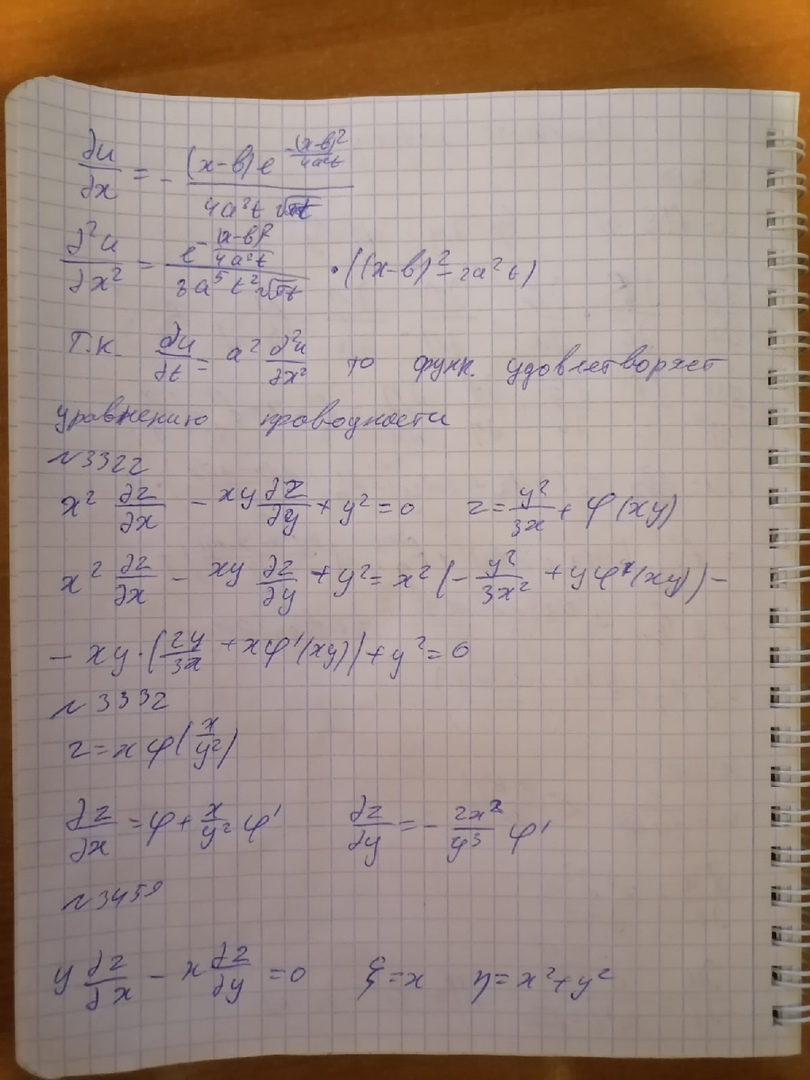 ∂u/∂x = - (x-b)e^(-(x-b)²/4a²t) / 4a³t√πt
∂²u/∂x² = e^(-(x-b)²/4a²t) / 8a⁵t²√πt · ((x-b)²-2a²t)
Т.к. ∂u/∂t = a² ∂²u/∂x² то функ. удовлетворяет
уравнению проводности
№3322
x² ∂z/∂x - xy ∂z/∂y + y² = 0 z = y²/3x + φ(xy)
x² ∂z/∂x - xy ∂z/∂y + y² = x² (- y²/3x² + yφ'(xy)) -
- xy·(2y/3x + xφ'(xy)) + y² = 0
№3332
z = xφ(x/y²)
∂z/∂x = φ + x/y² φ' ∂z/∂y = - 2x²/y³ φ'
№3459
y ∂z/∂x - x ∂z/∂y = 0 ξ = x η = x² + y²